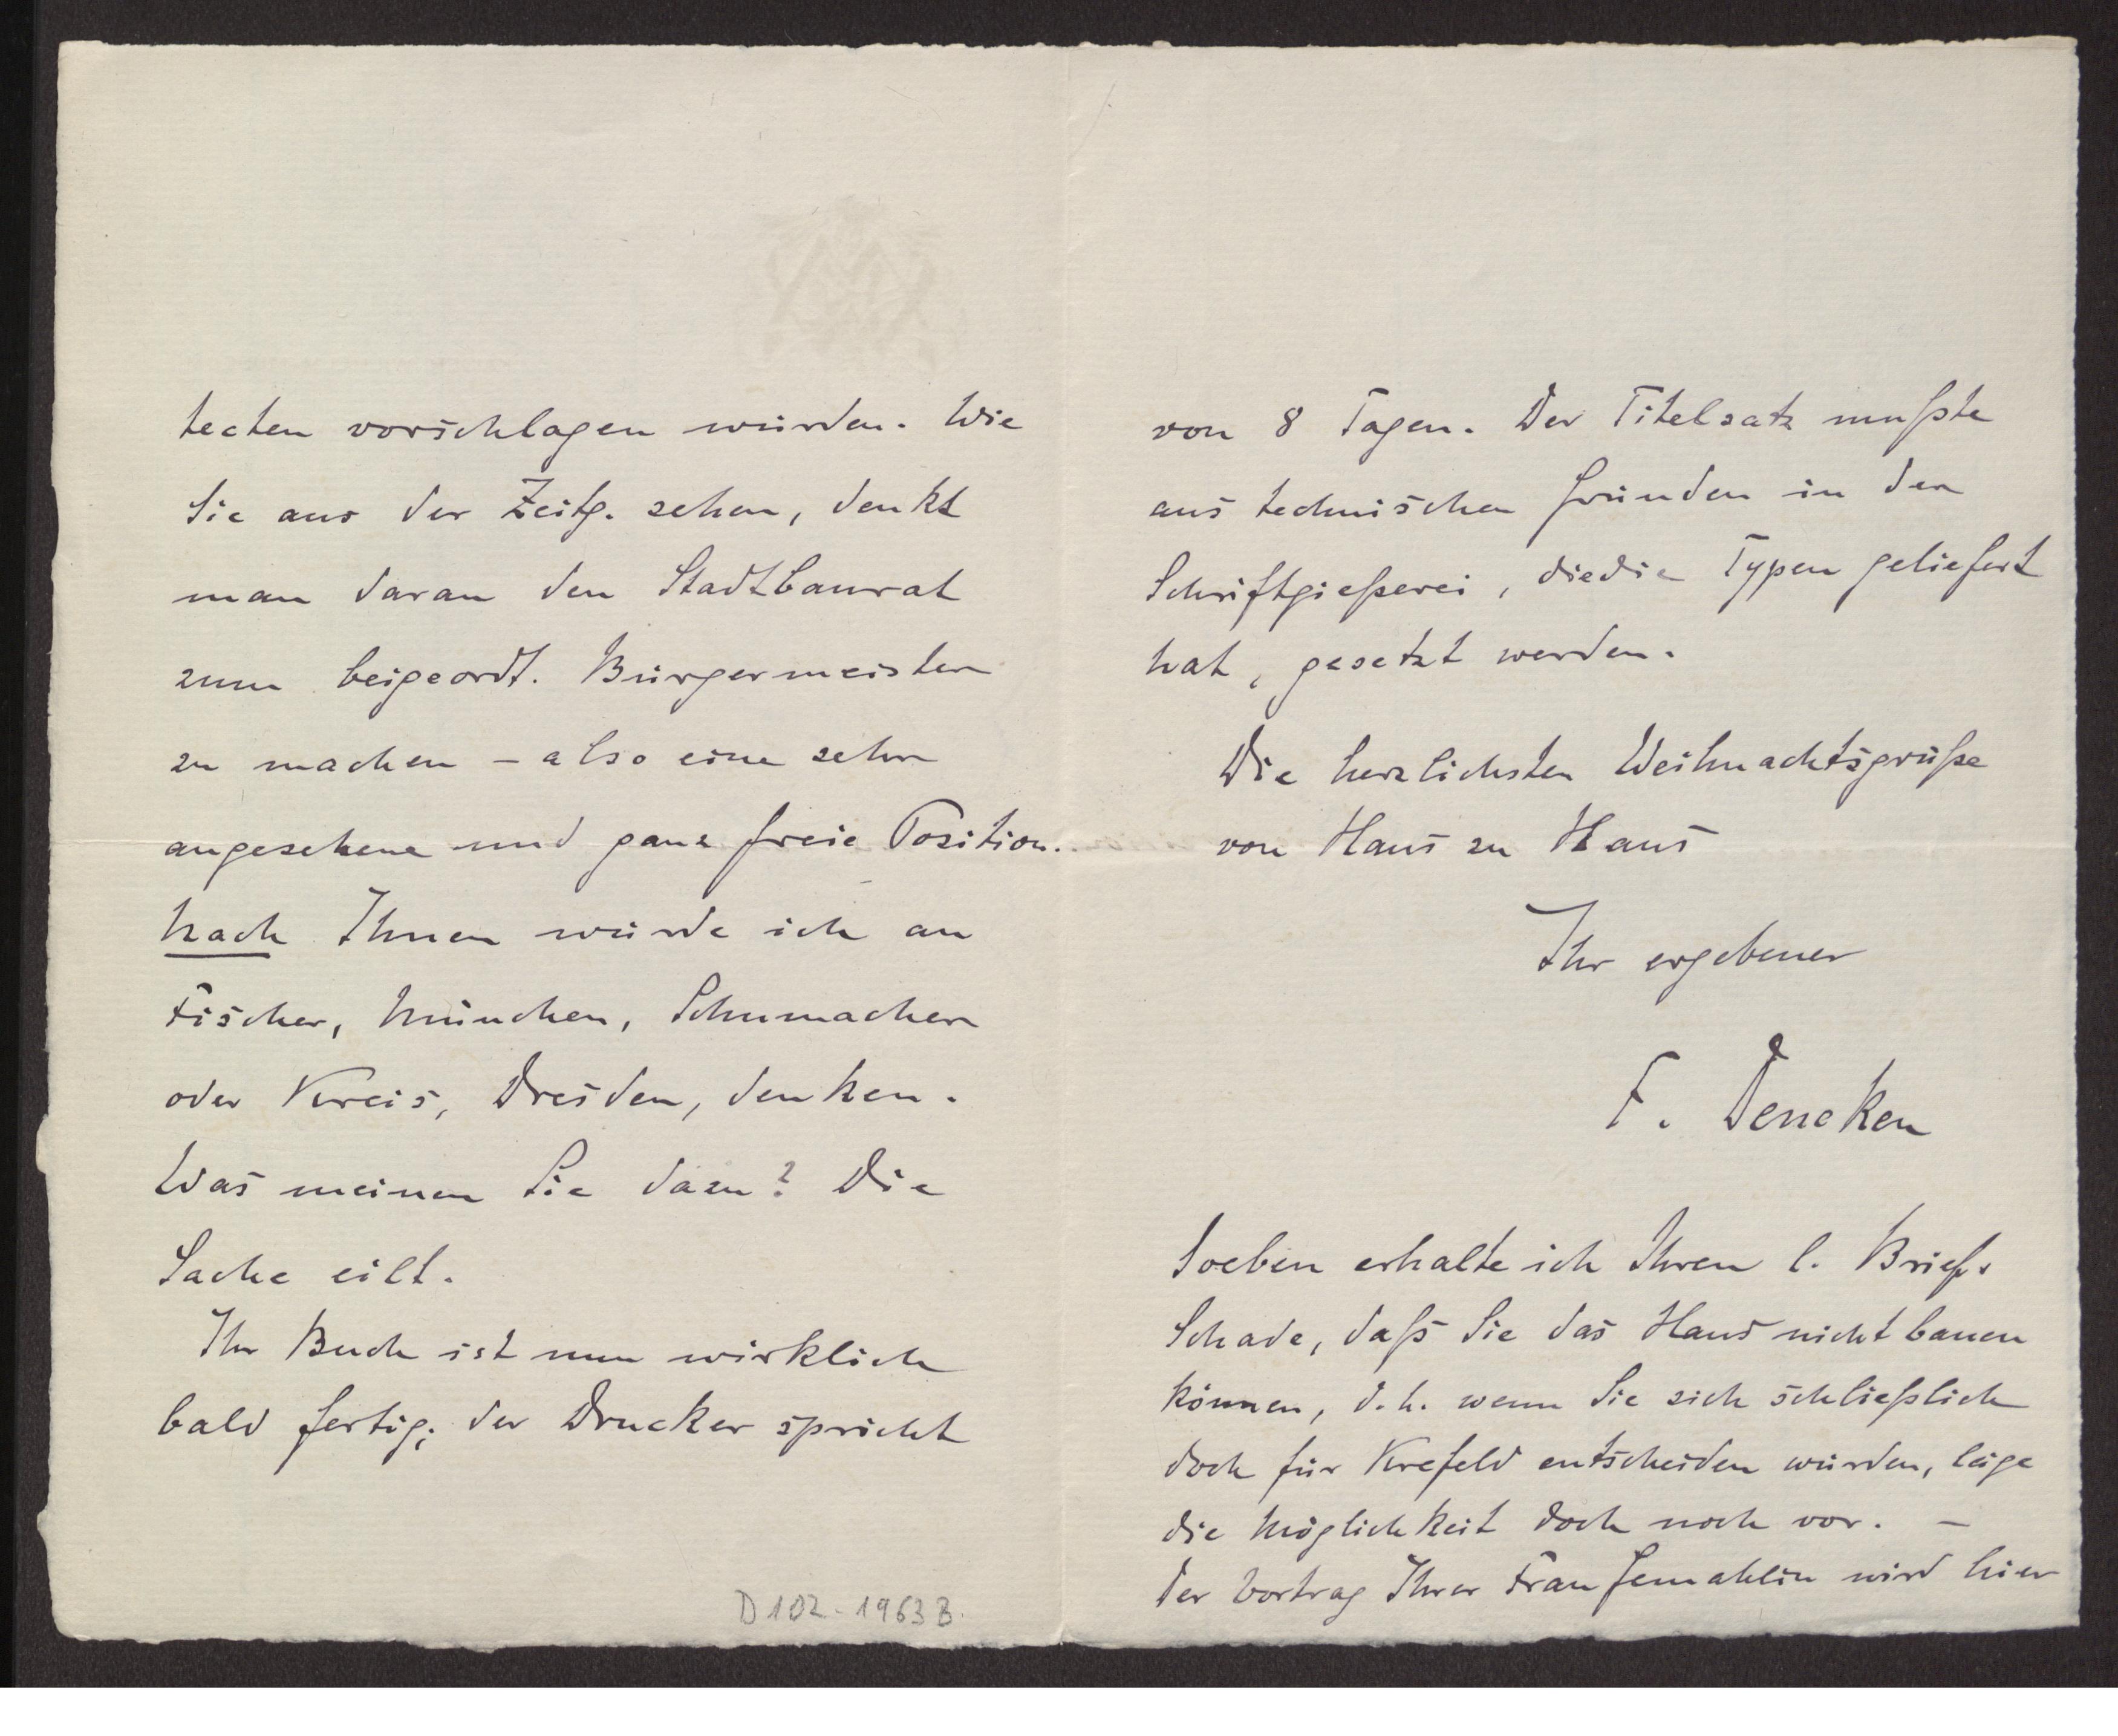 tecten vorschlagen würden. Wie
Sie aus der Zeitg. sehen, denkt
man daran den Stadtbaurat
zum beigeordt. Bürgermeister
zu machen – also eine sehr
angesehene und ganz freie Position.
Nach Ihnen würde ich an
Fischer, München, Schumacher
oder Kreis, Dresden, denken.
Was meinen Sie dazu? Die
Sache eilt.
Ihr Buch ist nun wirklich
bald fertig; der Drucker spricht
D 102-1963 B.
von 8 Tagen. Der Titelsatz mußte
aus technischen Gründen in der
Schriftgießerei, die die Typen geliefert
hat, gesetzt werden.
Die herzlichsten Weihnachtsgrüße
von Haus zu Haus
Ihr ergebener
F. Deneken
Soeben erhalte ich Ihren l. Brief.
Schade, daß Sie das Haus nicht bauen
können, d. h. wenn Sie sich schließlich
doch für Krefeld entscheiden würden, läge
die Möglichkeit doch noch vor. –
Der Vortrag Ihrer Frau Gemahlin wird hier